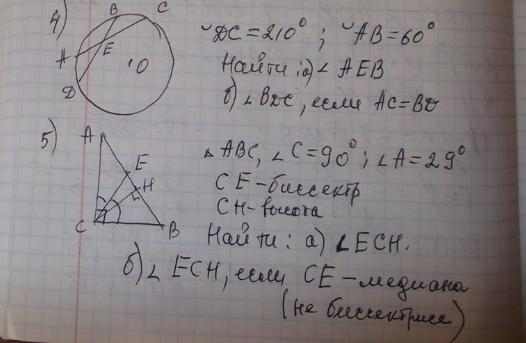 4) B C A E D O
◡DC = 210° ; ◡AB = 60°
Найти : а) ∠ AEB
б) ∠ BDC, если AC = BD
5) A E H C B
△ ABC, ∠ C = 90° ; ∠ A = 29°
CE - биссектр
CH - высота
Найти : а) ∠ ECH.
б) ∠ ECH, если CE - медиана
(не биссектриса)